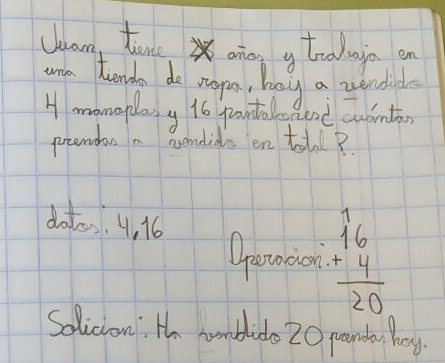 Juan tiene años y trabaja en
una tienda de ropa, hoy a vendido
4 manoplas y 16 pantalones¿ cuántas
prendas a vendido en total?
datos: 4,16
1
16
Operacion: + 4
20
Solicion: Ha vendido 20 prendas hoy.